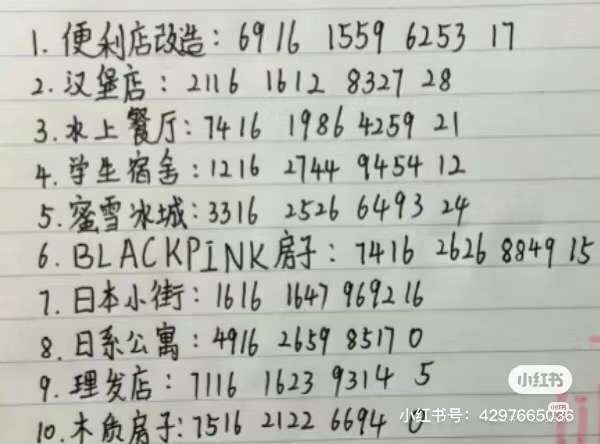 1. 便利店改造: 6916 1559 6253 17
2. 汉堡店: 2116 1612 8327 28
3. 水上餐厅: 7416 1986 4259 21
4. 学生宿舍: 1216 2744 9454 12
5. 蜜雪冰城: 3316 2526 6493 24
6. BLACKPINK房子: 7416 2626 8849 15
7. 日本小街: 1616 1647 9692 16
8. 日系公寓: 4916 2659 8517 0
9. 理发店: 7116 1623 9314 5
小红书
10. 木质房子: 7516 2122 6694 0
小红书号: 4297665036